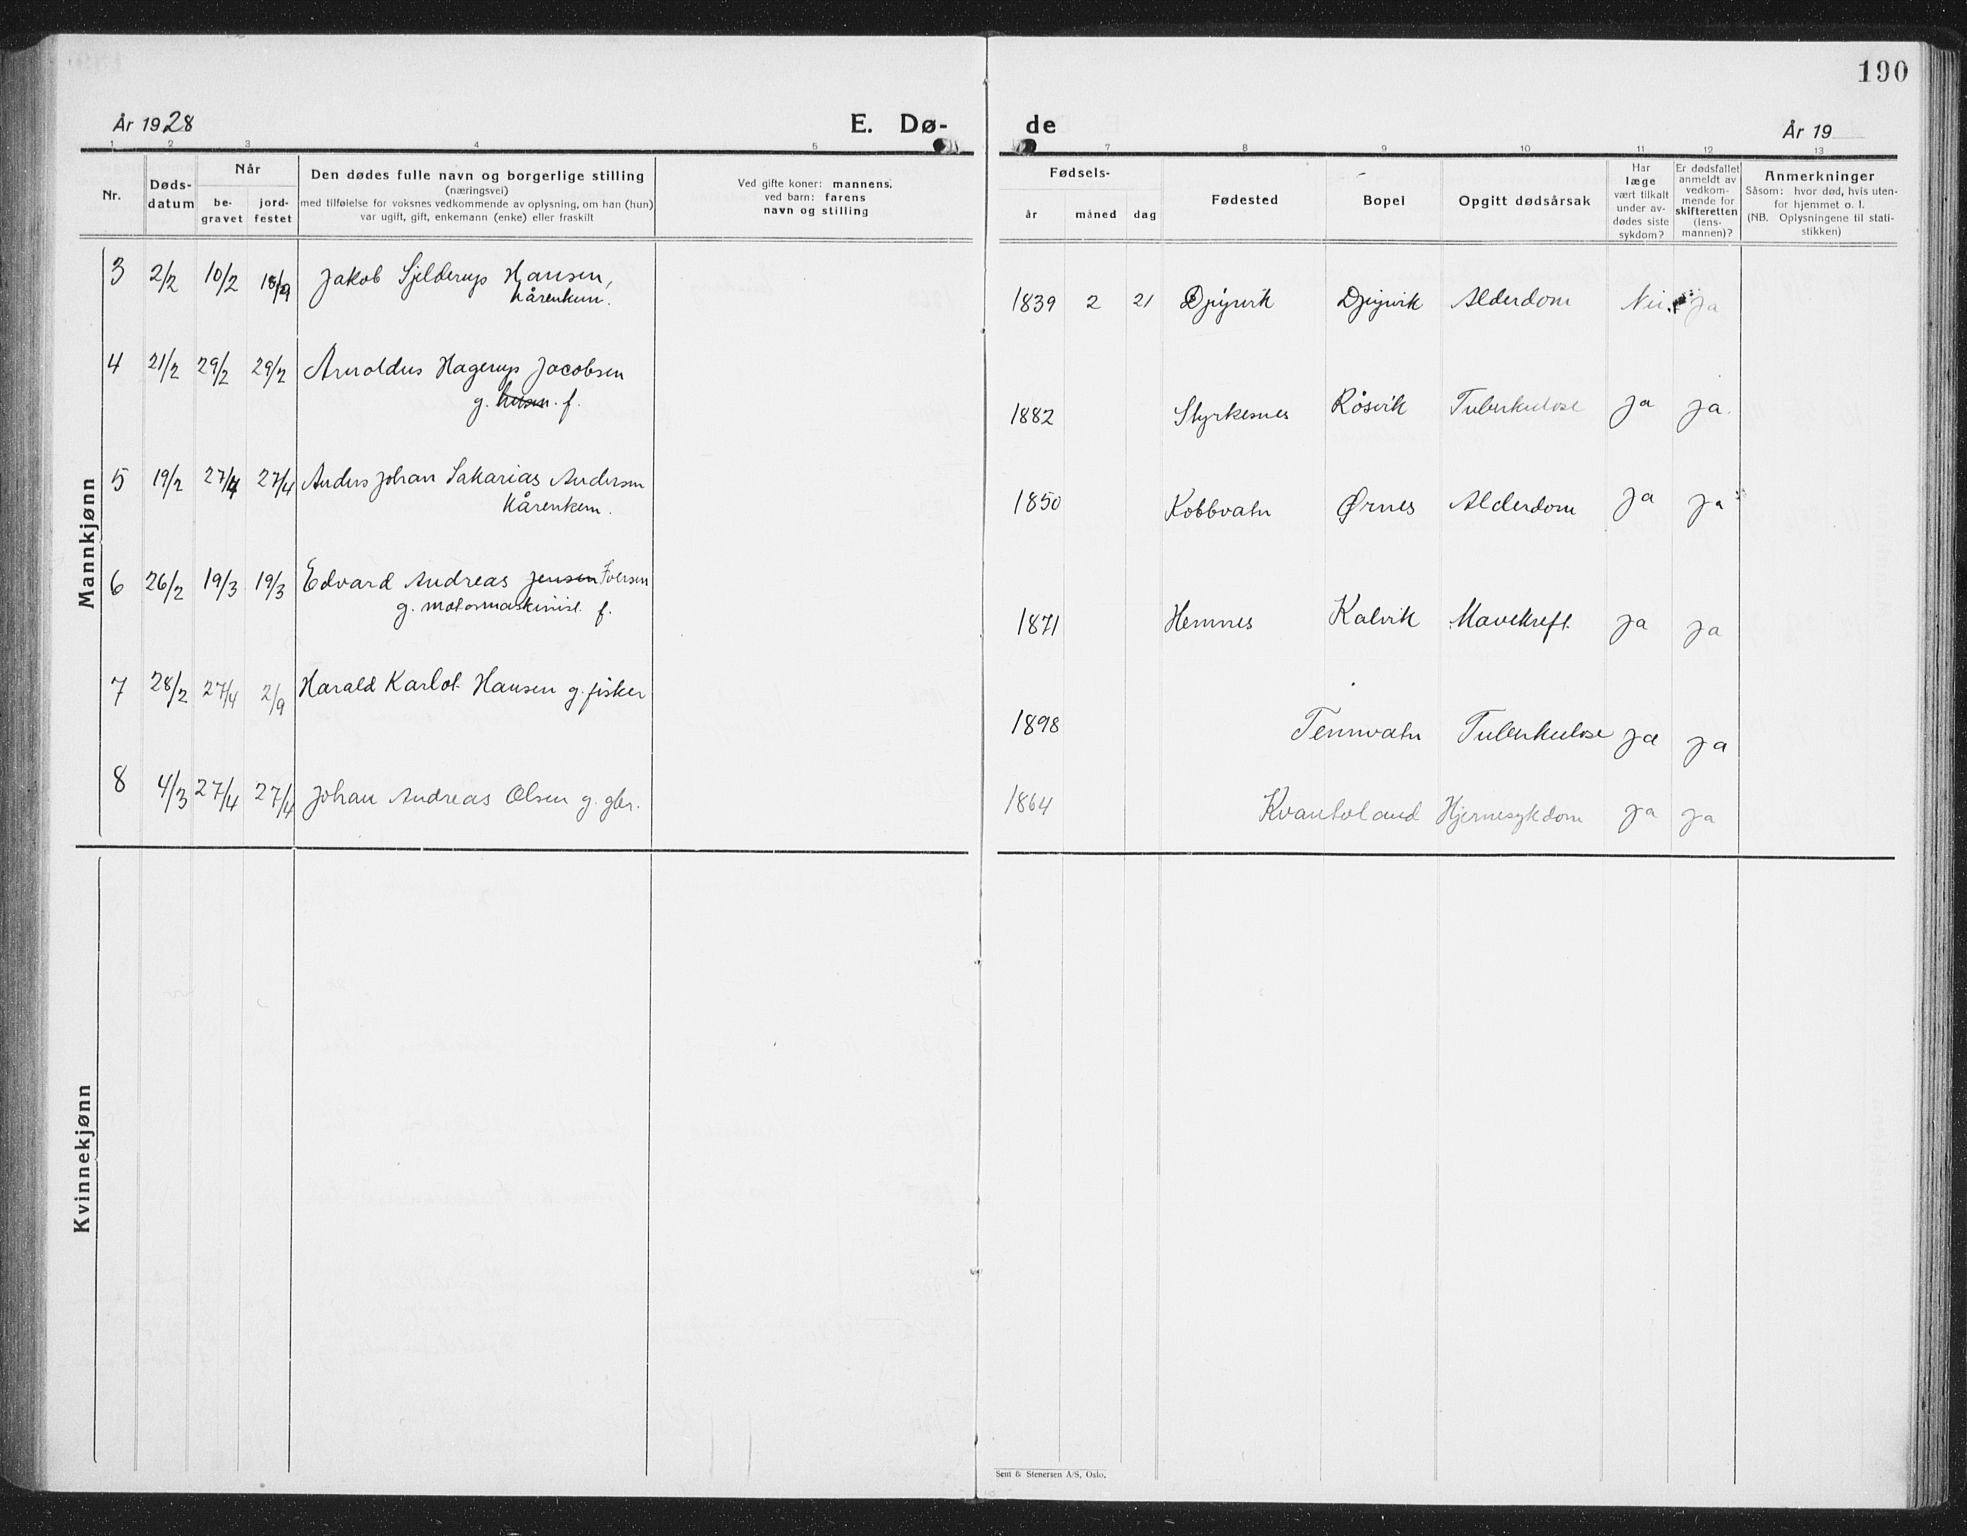 190
År 1928
E. Dø-
de
År 19
1 2 3 4 5 7 8 9 10 11 12 13
Nr.
Døds-
datum
Når
be-
gravet
jord-
festet
Den dødes fulle navn og borgerlige stilling
(næringsvei)
med tilføielse for voksnes vedkommende av oplysning, om han (hun)
var ugift, gift, enkemann (enke) eller fraskilt
Ved gifte koner: mannens,
ved barn: farens
navn og stilling
Fødsels-
år måned dag
Fødested
Bopel
Opgitt dødsårsak
Har
læge
vært tilkalt
under av-
dødes siste
sykdom?
Er dødsfallet
anmeldt av
vedkom-
mende for
skifteretten
(lens-
mannen)?
Anmerkninger
Såsom: hvor død, hvis uten-
for hjemmet o. l.
(NB. Oplysningene til stati-
stikken)
Mannkjønn
3 2/2 10/2 18/9 Jakob Sjelderup Hansen, 1839 2 21 Djupvik Djupvik Alderdom Nei Ja
kårenkem.
4 21/2 29/2 29/2 Arnoldus Hagerup Jacobsen 1882 Styrkesnes Røsvik Tuberkulose Ja Ja.
g. f.
5 19/2 27/4 27/4 Anders Johan Sakarias Andersen 1850 Kobbvatn Ørnes Alderdom Ja Ja
Kårenkem.
6 26/2 19/3 19/3 Edvard Andreas Jensen Iversen 1871 Hemnes Kalvik Mavekreft Ja Ja
g. motormaskinist f.
7 28/2 27/4 2/9 Harald Karlot Hansen g. fisker 1898 Tennvatn Tuberkulose Ja Ja
8 4/3 27/4 27/4 Johan Andreas Olsen g. gbr. 1864 Kvantoland Hjernesykdom Ja Ja
Kvinnekjønn
Sem & Stenersen A/S, Oslo.